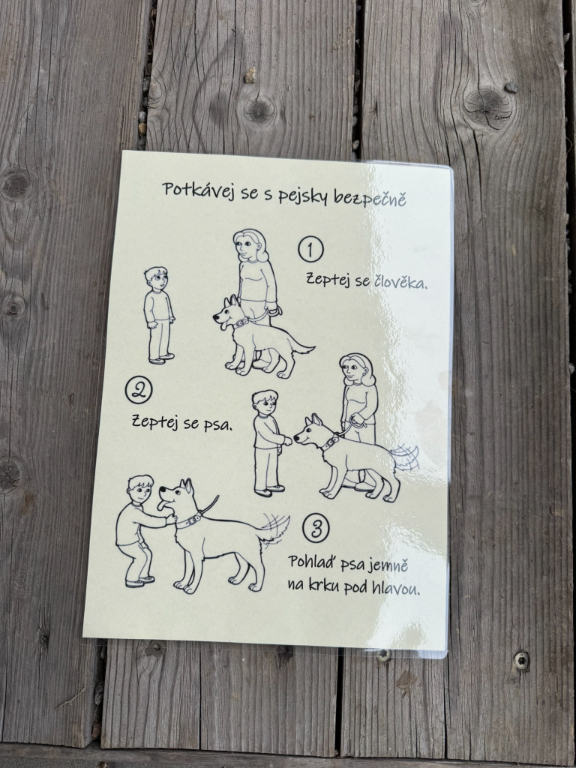 Potkávej se s pejsky bezpečně
1
Zeptej se člověka.
2
Zeptej se psa.
3
Pohlaď psa jemně
na krku pod hlavou.